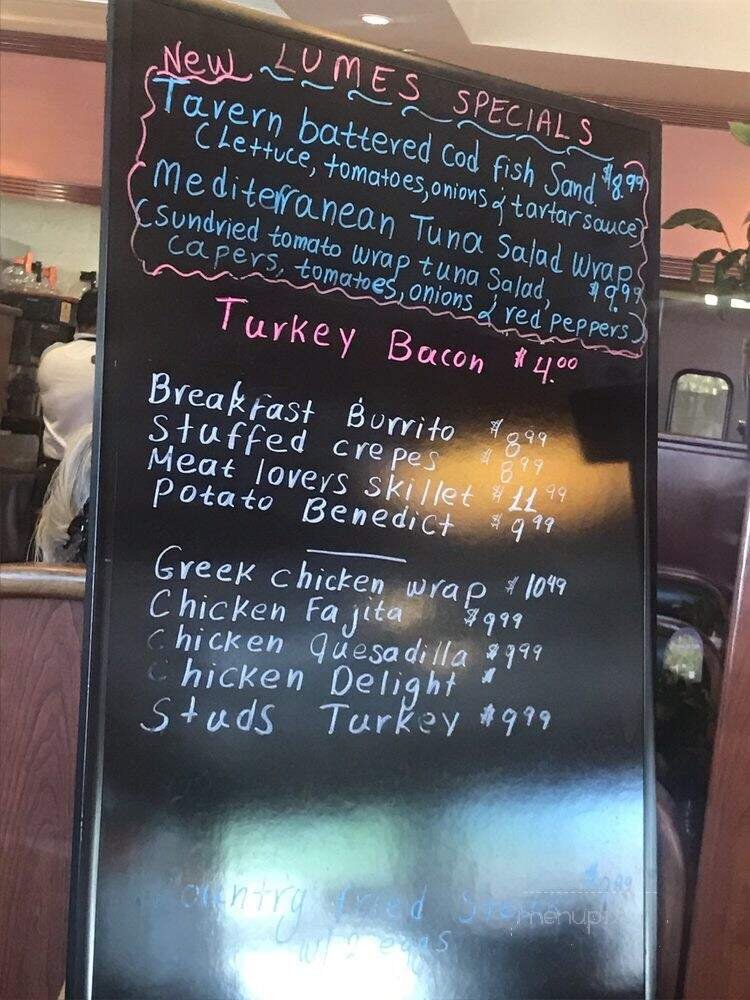 New LUMES SPECIALS
Tavern battered Cod fish Sand. $8.99
(Lettuce, tomatoes, onions & tartar sauce)
Mediterranean Tuna Salad Wrap
(sundried tomato wrap tuna Salad, $9.99
capers, tomatoes, onions & red peppers)
Turkey Bacon $4.00
Breakfast Burrito $8.99
Stuffed crepes $8.99
Meat lovers skillet $11.99
Potato Benedict $9.99
Greek chicken wrap $10.49
Chicken Fajita $9.99
Chicken Quesadilla $9.99
Chicken Delight $
Studs Turkey $9.99
Country fried Steak
w/ 2 eggs
menupix